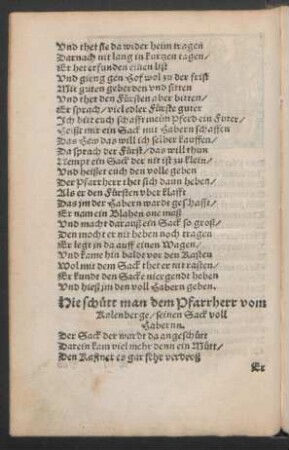 Vnd thet sie da wider heim tragen
Darnach nit lang in kurtzen tagen/
Er het erfunden einen list
Vnd gieng gen Hof wol zu der frist
Mit guten geberden vnd sitten
Vnd thet den Fürsten aber bitten/
Er sprach/ viel edler Fürste guter
Ich bitt euch schafft meim Pferd ein Futer/
Heist mir ein Sack mit Habern schaffen
Das Hew das will ich selber kauffen/
Da sprach der Fürst/ das will thun
Nempt ein Sack der nit ist zu klein/
Vnd heisset euch den volle geben
Der Pfarrherr thet sich dann heben/
Als er den Fürsten vber klafft
Das jm der Habern wardt geschafft
Er nam ein Blahen one maß
Vnd macht darauß ein Sack so groß/
Den mocht er nit heben noch tragen
Er legt in da auff einen Wagen/
Vnd kame hin balde vor den Kasten
Wol mit dem Sack thet er nit rasten/
Er kundt den Sack niergendt heben
Vnd hieß im den voll Habern geben.
Hie schütt man dem Pfarrherr vom
Kalenberge/ seinen Sack voll
Habernn.
Der Sack der wardt da angeschütt
Darein kam viel mehr denn ein Mütt/
Den Kastner es gar sehr verdroß
Er